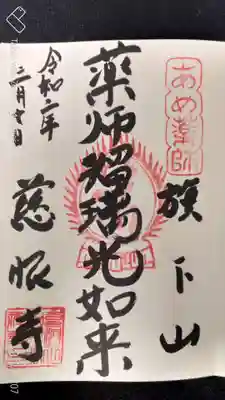 あめ薬師
旗下山
薬師瑠璃光如来
令和二年
二月廿日
慈眼寺